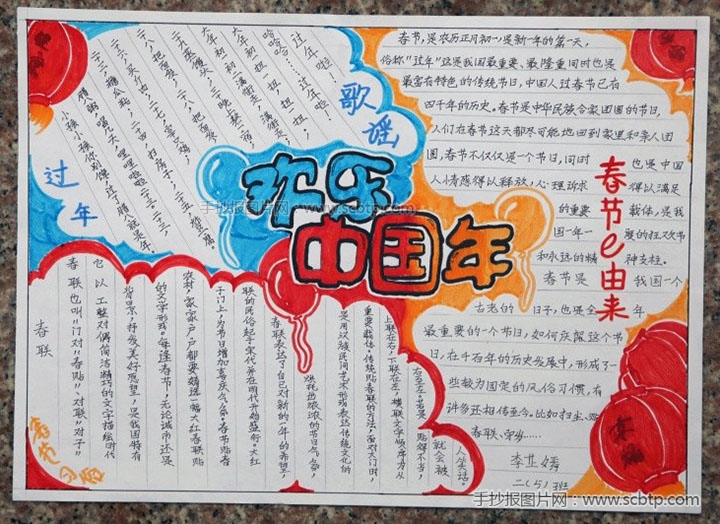 欢乐
中国年
手抄报图片网 - www.scbtp.com
歌谣
过年
小孩小孩你别馋，过了腊八就是年。
腊八粥，喝几天，哩哩啦啦二十三。
二十三，糖瓜粘，二十四，扫房子，二十五，做豆腐，
二十六，买斤肉，二十七，宰只鸡，
二十八，把面发，
二十九，蒸馒头，
三十晚上熬一宿，
大年初一扭一扭，
过年啦！
春节e由来
春节，是农历正月初一，是新一年的第一天，
俗称"过年"这是我国最重要、最隆重同时也是
最富有特色的传统节日，中国人过春节已有
四千年的历史。春节是中华民族合家团圆的节日，
人们在春节这天都尽可能地回到家里和亲人团
圆，春节不仅仅是一个节日，同时 也是中国
人情感得以释放，心理诉求 得以满足
的重要 载体，是我
国一年一 度的狂欢节
和永远的精 神支柱。
春节是 我国一个
古老的 日子，也是全 年
最重要的一个节日，如何庆祝这个节
日，在千百年的历史发展中，形成了一
些较为固定的风俗习惯，有
许多还相传至今。比如扫尘、贴
春联、守岁……
二（5）班
春节习俗
春联
春联也叫"门对""春贴"、对联"对子"
它以工整对偶简洁精巧的文字描绘时代
背景，抒发美好愿望，是我国特有
的文学形式。每逢春节，无论城市还是
农村，家家户户都要精选一幅大红春联贴
于门上，为节日增加喜庆气氛。春节贴春
联的民俗起于宋代并在明代开始盛行，大红
春联表达了自己对新的一年的希望，
烘托出浓浓的节日气氛，
是用汉族民间艺术形式表达传统文化的
重要载体，传统贴春联的方法，面对大门时，
上联在右，下联在左，横联文字顺序为从
右至左。若是
贴得不当，
就会被
人笑话。
手抄报图片网：www.scbtp.com